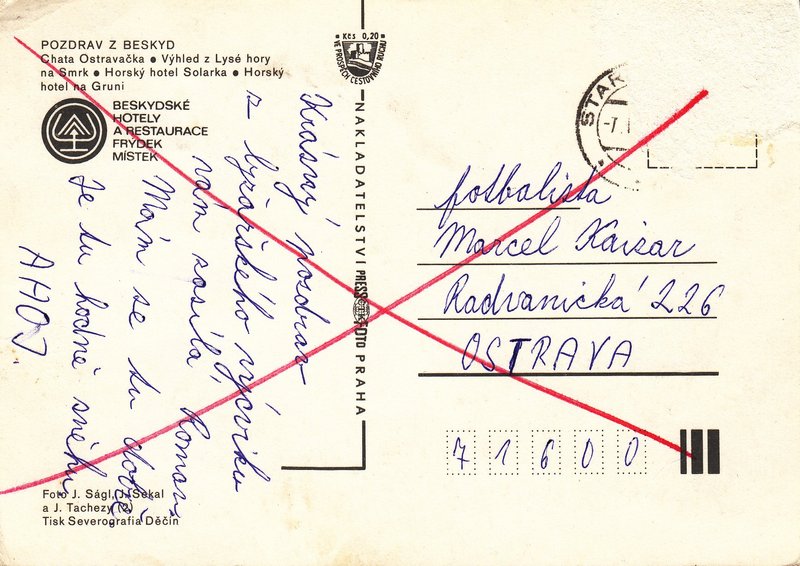 POZDRAV Z BESKYD
Chata Ostravačka • Výhled z Lysé hory
na Smrk • Horský hotel Solarka • Horský
hotel na Gruni
BESKYDSKÉ
HOTELY
A RESTAURACE
FRÝDEK
MÍSTEK
Krásný pozdrav
z lyžařského výcviku
vám posílá Roman
Mám se tu dobře
Je tu hodně sněhu
AHOJ.
Foto J. Ságl, J. Sekal
a J. Tachezy (2)
Tisk Severografia Děčín
Kčs 0,20
VE PROSPĚCH CESTOVNÍHO RUCHU
NAKLADATELSTVÍ PRESSFOTO PRAHA
STAR
-7.
fotbalista
Marcel Kaizar
Radvanická 226
OSTRAVA
71600